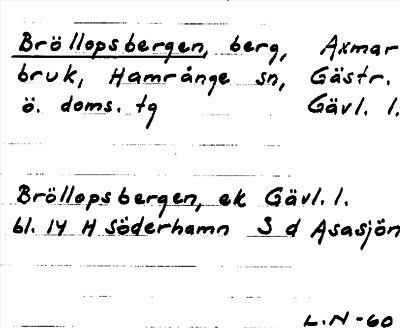 Bröllopsbergen, berg, Axmar
bruk, Hamrånge sn, Gästr.
ö. doms. tg Gävl. l.
Bröllopsbergen, ek Gävl. l.
bl. 14 H Söderhamn S d Asasjön
L.N-60